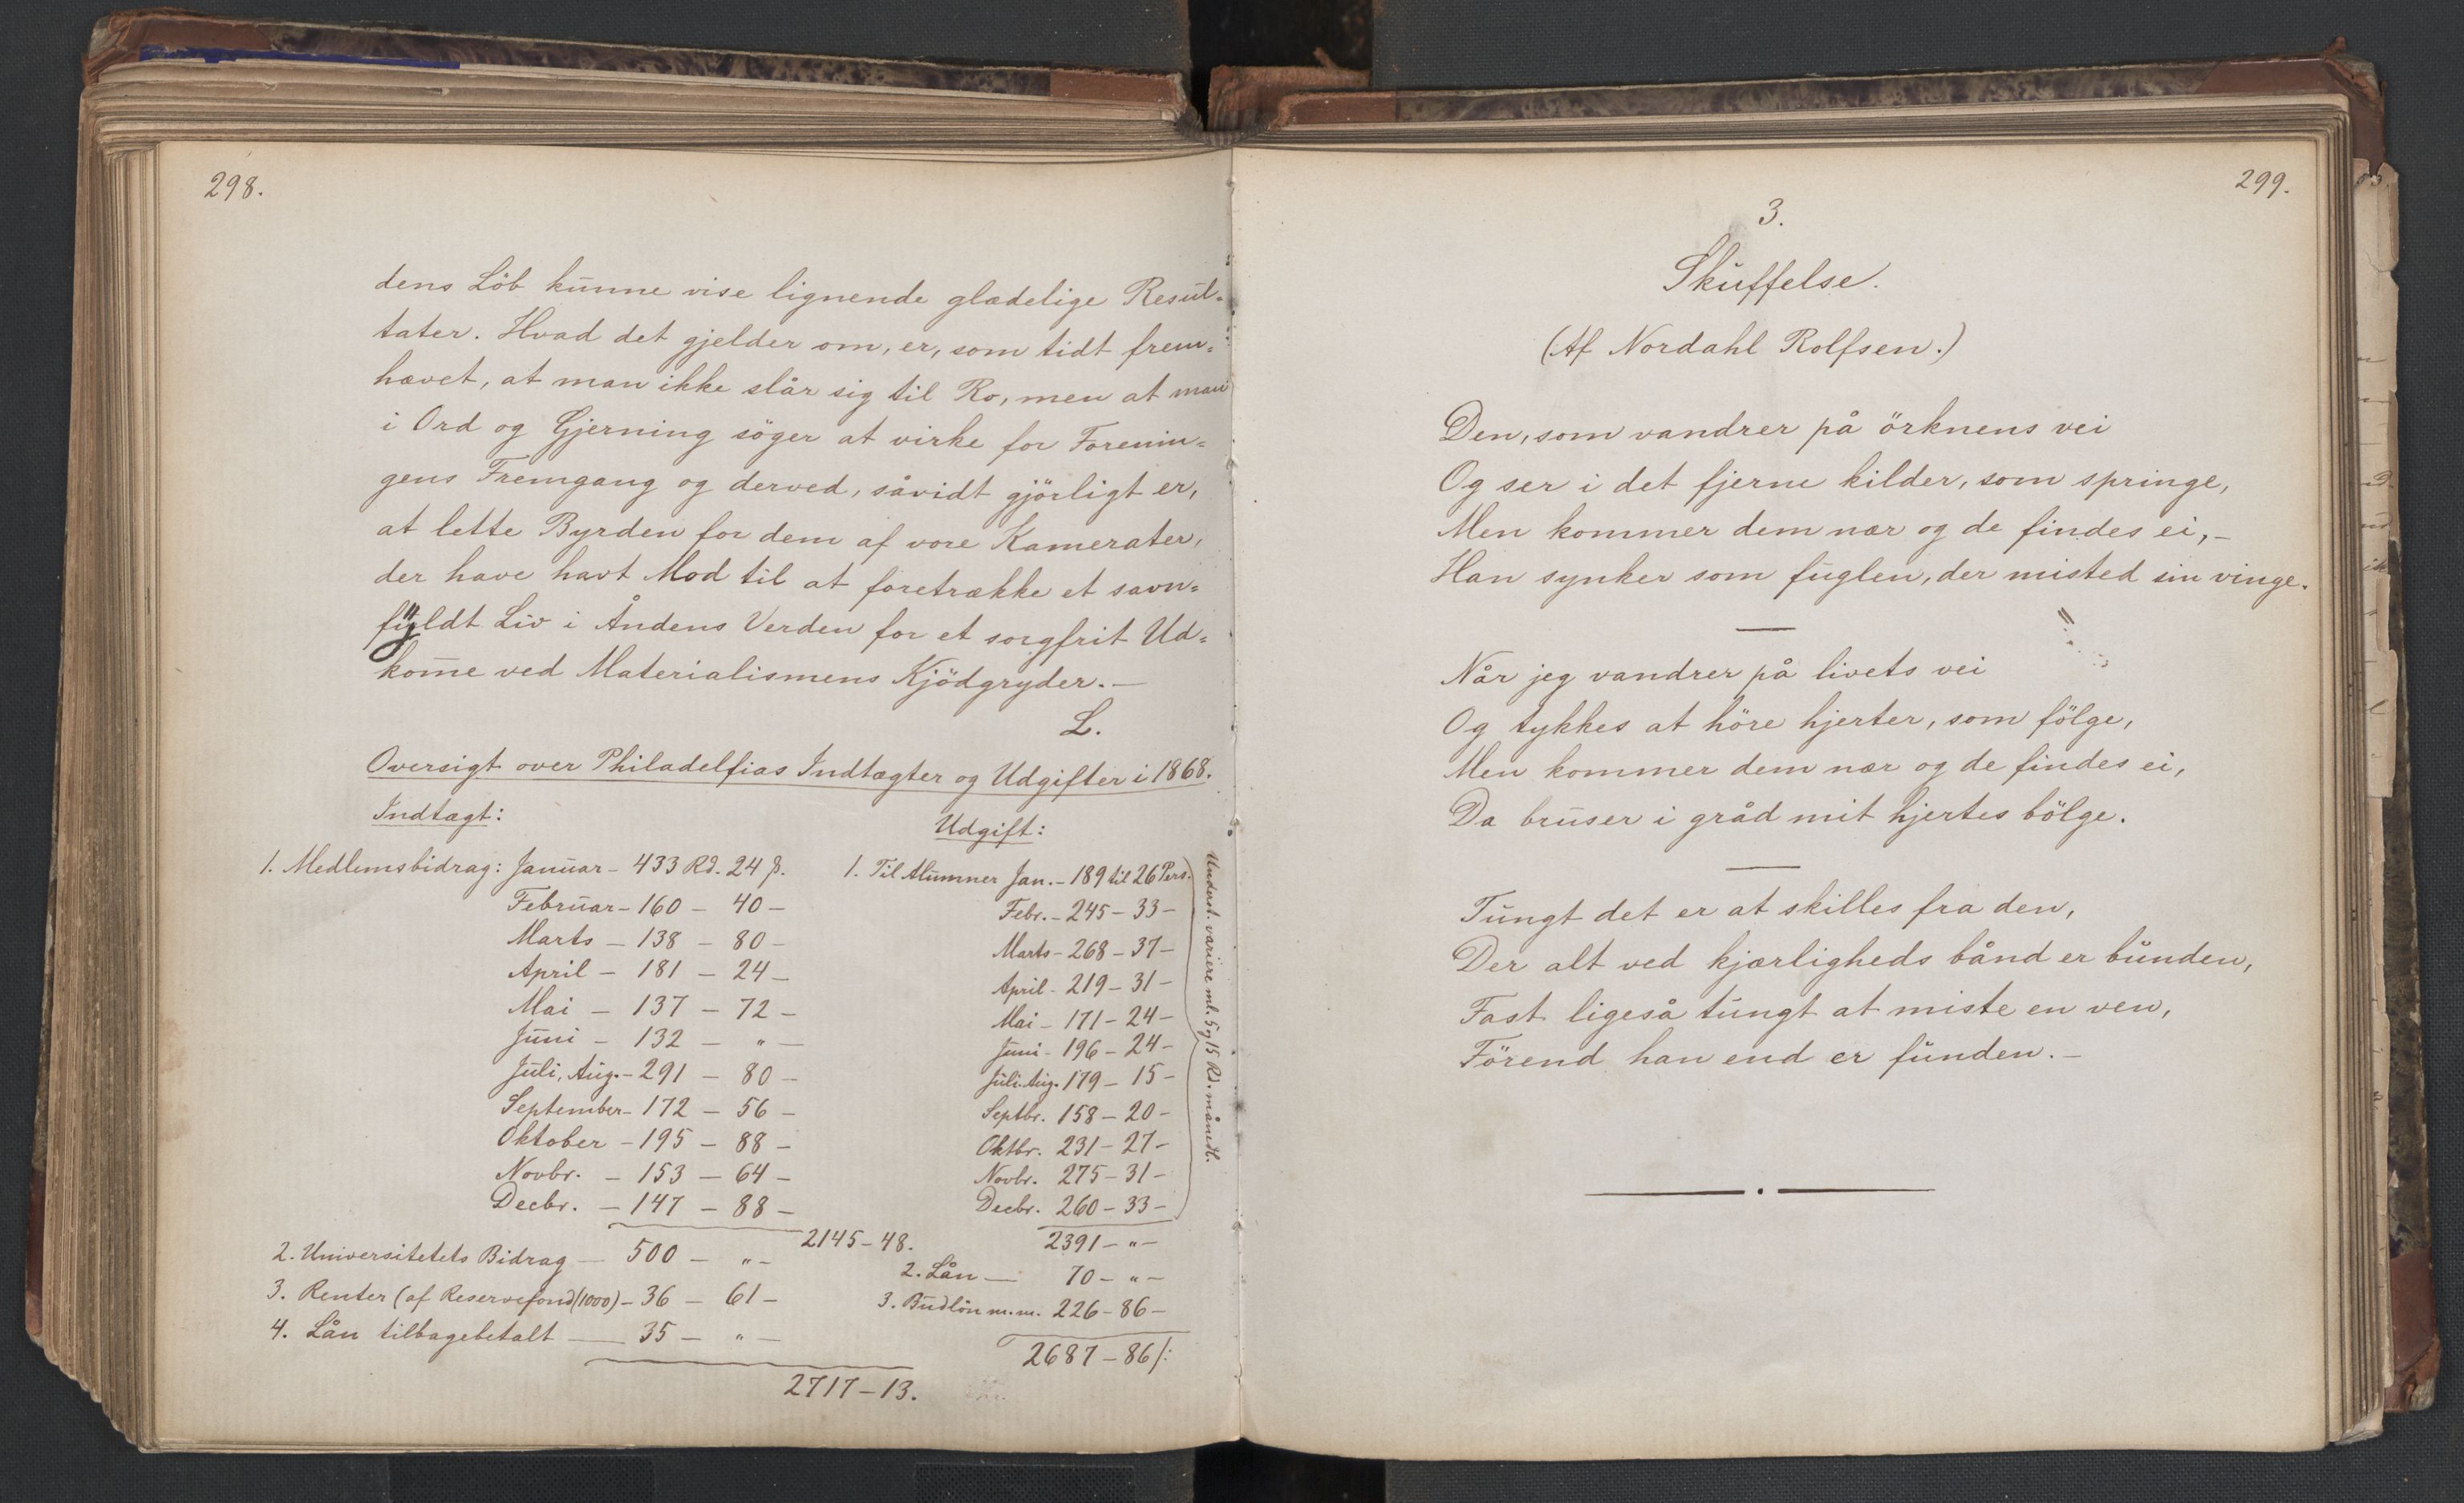 298.
dens Löb kunne vise lignende glædelige Resul-
tater. Hvad det gjelder om, er, som tidt frem-
hævet, at man ikke slår sig til Ro, men at man
i Ord og Gjerning söger at virke for Forenin-
gens Fremgang og derved, såvidt gjörligt er,
at lette Byrden for dem af vore Kamerater,
der have havt Mod til at foretrække et savn-
fyldt Liv i Åndens Verden for et sorgfrit Ud-
kom̄e ved Materialismens Kjödgryder. —
L.
Oversigt over Philadelfias Indtægter og Udgifter i 1868.
Indtægt:
1. Medlemsbidrag: Januar - 433 Rd. 24 β.
Februar - 160 - 40 -
Marts - 138 - 80 -
April - 181 - 24 -
Mai - 137 - 72 -
Juni - 132 - " -
Juli, Aug. - 291 - 80 -
September - 172 - 56 -
Oktober - 195 - 88 -
Novbr. - 153 - 64 -
Decbr. - 147 - 88 -
2145 - 48.
2. Universitetets Bidrag - 500 - " -
3. Renter (af Reservefond (1000) - 36 - 61 -
4. Lån tilbagebetalt - 35 - " -
2717 - 13.
Udgift:
1. Til Alumner Jan. - 189 til 26 Pers.
Febr. - 245 - 33 -
Marts - 268 - 37 -
April - 219 - 31 -
Mai - 171 - 24 -
Juni - 196 - 24 -
Juli. Aug. 179 - 15 -
Septbr. 158 - 20 -
Oktbr. 231 - 27 -
Novbr. 275 - 31 -
Decbr. 260 - 33 -
Underst. variere ml. 5 og 15 Rd. månedl.
2391 - " -
2. Lån - 70 - " -
3. Budlön m.m. 226 - 86 -
2687 - 86 /:
299.
3.
Skuffelse.
(Af Nordahl Rolfsen.)
Den, som vandrer på örknens vei
Og ser i det fjerne kilder, som springe,
Men kommer dem nær og de findes ei, -
Han synker som fuglen, der misted sin vinge.
Når jeg vandrer på livets vei
Og tykkes at höre hjerter, som fölge,
Men kommer dem nær og de findes ei,
Da bruser i gråd mit hjertes bölge.
Tungt det er at skilles fra den,
Der alt ved kjærligheds bånd er bunden,
Fast ligeså tungt at miste en ven,
Förend han end er funden. -